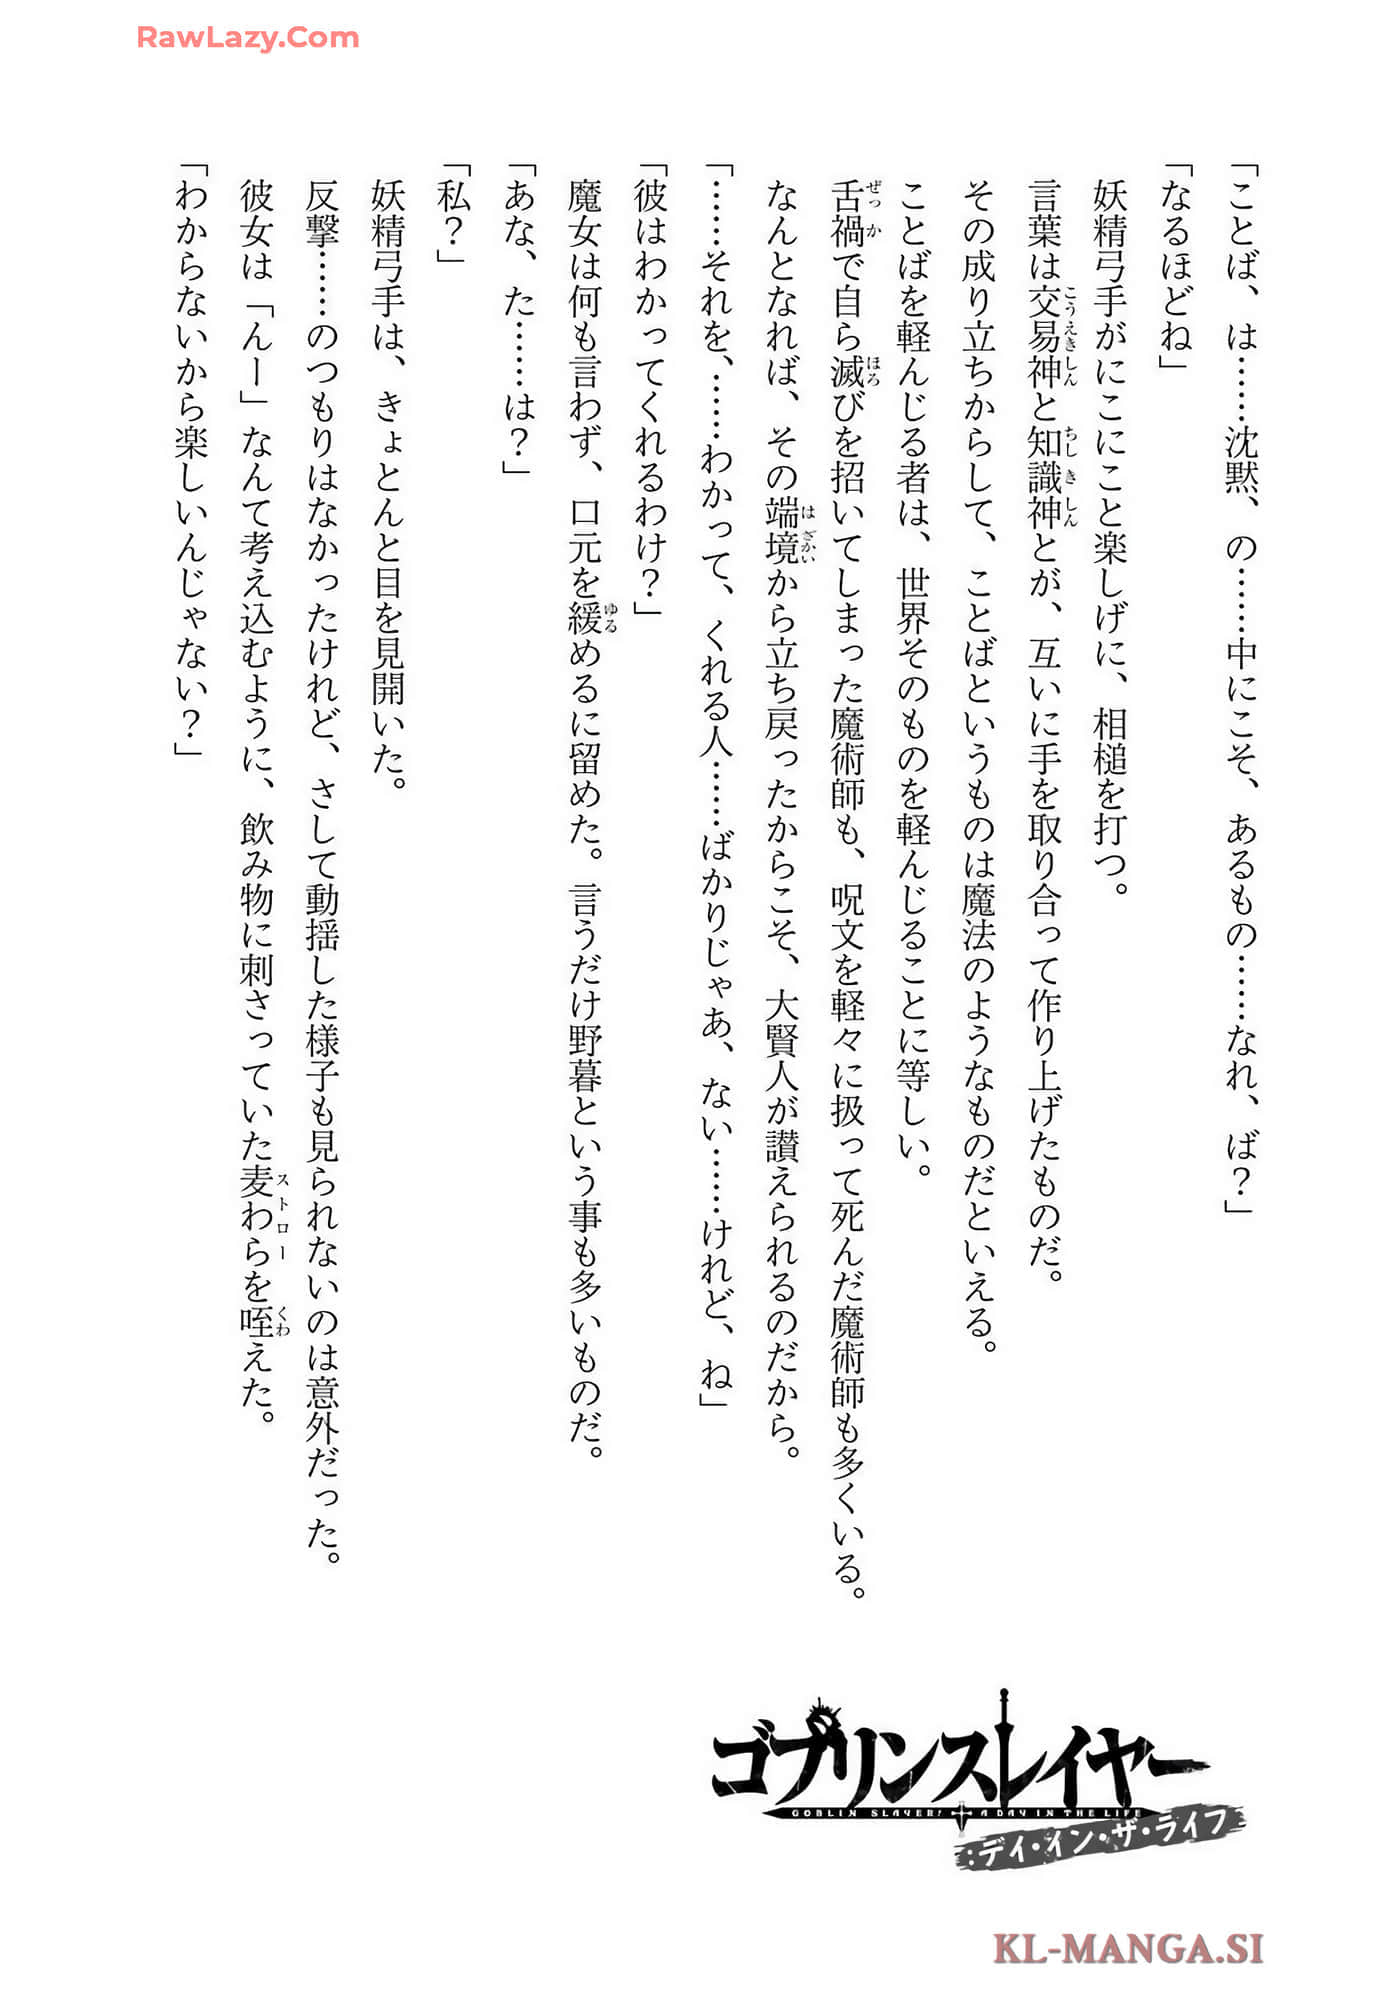 RawLazy.Com
「ことば、は……沈黙、の……中にこそ、あるもの……なれ、ば？」
「なるほどね」
妖精弓手がにこにこと楽しげに、相槌を打つ。
言葉は交易神と知識神とが、互いに手を取り合って作り上げたものだ。
その成り立ちからして、ことばというものは魔法のようなものだといえる。
ことばを軽んじる者は、世界そのものを軽んじることに等しい。
舌禍で自ら滅びを招いてしまった魔術師も、呪文を軽々に扱って死んだ魔術師も多くいる。
なんとなれば、その端境から立ち戻ったからこそ、大賢人が讃えられるのだから。
「……それを、……わかって、くれる人……ばかりじゃあ、ない……けれど、ね」
「彼はわかってくれるわけ？」
魔女は何も言わず、口元を緩めるに留めた。言うだけ野暮という事も多いものだ。
「あな、た……は？」
「私？」
妖精弓手は、きょとんと目を見開いた。
反撃……のつもりはなかったけれど、さして動揺した様子も見られないのは意外だった。
彼女は「んー」なんて考え込むように、飲み物に刺さっていた麦わらを咥えた。
「わからないから楽しいんじゃない？」
こうえきしん
ちしきしん
ぜっか
ほろ
はざかい
ゆる
ストロー
くわ
ゴブリンスレイヤー
GOBLIN SLAYER! A DAY IN THE LIFE
：デイ・イン・ザ・ライフ
KL-MANGA.SI